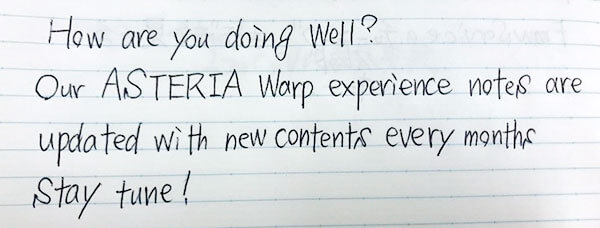 How are you doing Well?
Our ASTERIA Warp experience notes are
updated with new contents every months
Stay tune!